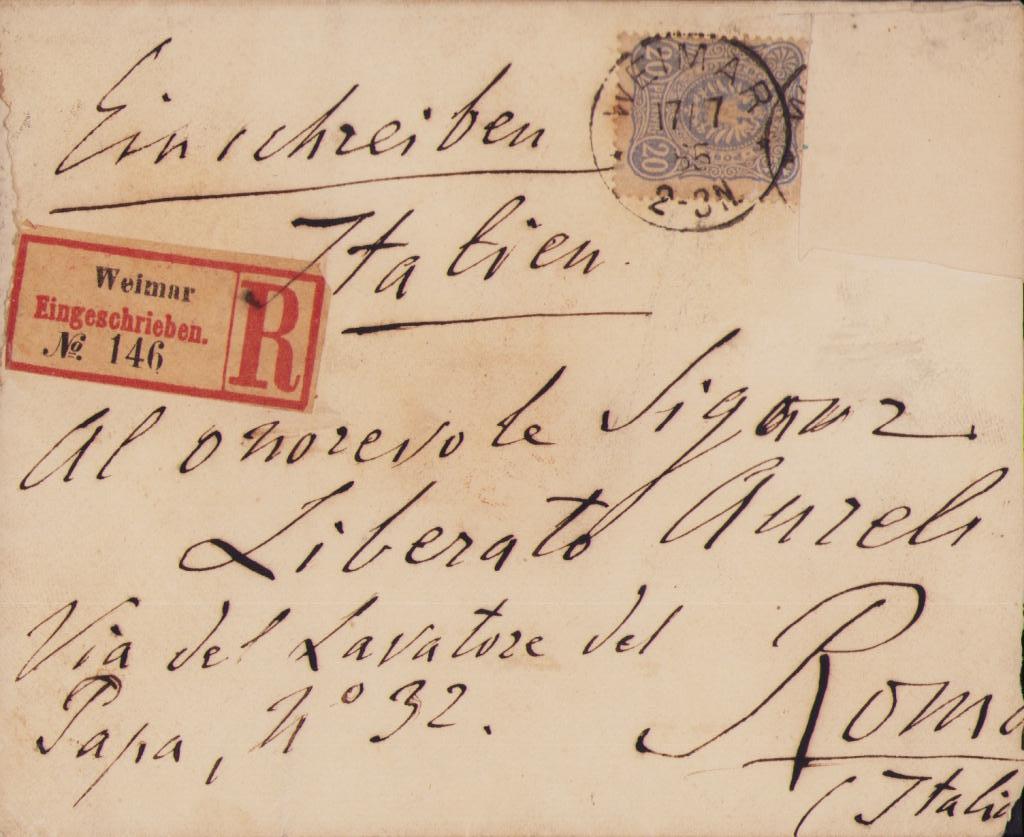 Einschreiben
Italien.
WEIMAR
17 7
85
2-3N.
20
20
Weimar
Eingeschrieben.
№ 146
R
Al onorevole Signor
Liberato Aureli
Via del Lavatore del
Papa, N° 32.
Roma
(Italia